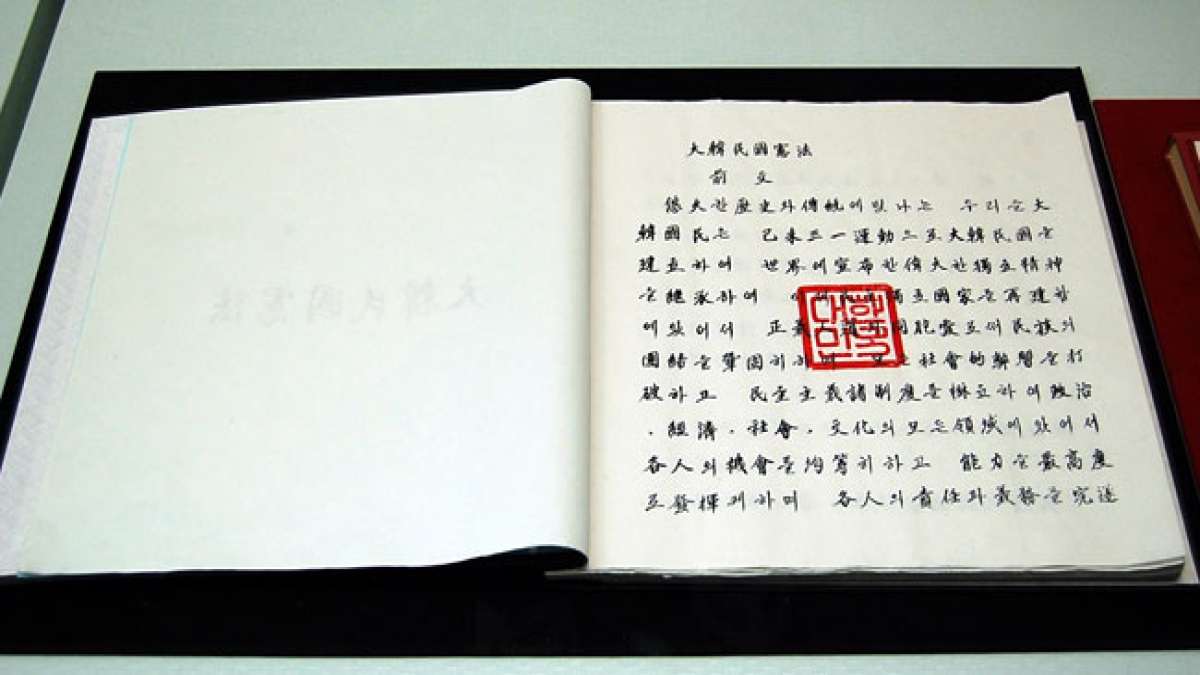 大韓民國憲法
大韓民國憲法
前文
悠久한 歷史와 傳統에 빛나는 우리들 大
韓國民은 己未三一運動으로 大韓民國을
建立하여 世界에 宣布한 偉大한 獨立精神
을 繼承하여 이제 民主獨立國家를 再建함
에 있어서 正義人道와 同胞愛로써 民族의
團結을 鞏固히하며 모든 社會的弊習을 打
破하고 民主主義諸制度를 樹立하여 政治
、經濟、社會、文化의 모든 領域에 있어서
各人의 機會를 均等히하고 能力을 最高度
로 發揮케하며 各人의 責任과 義務를 完遂
대한
민국